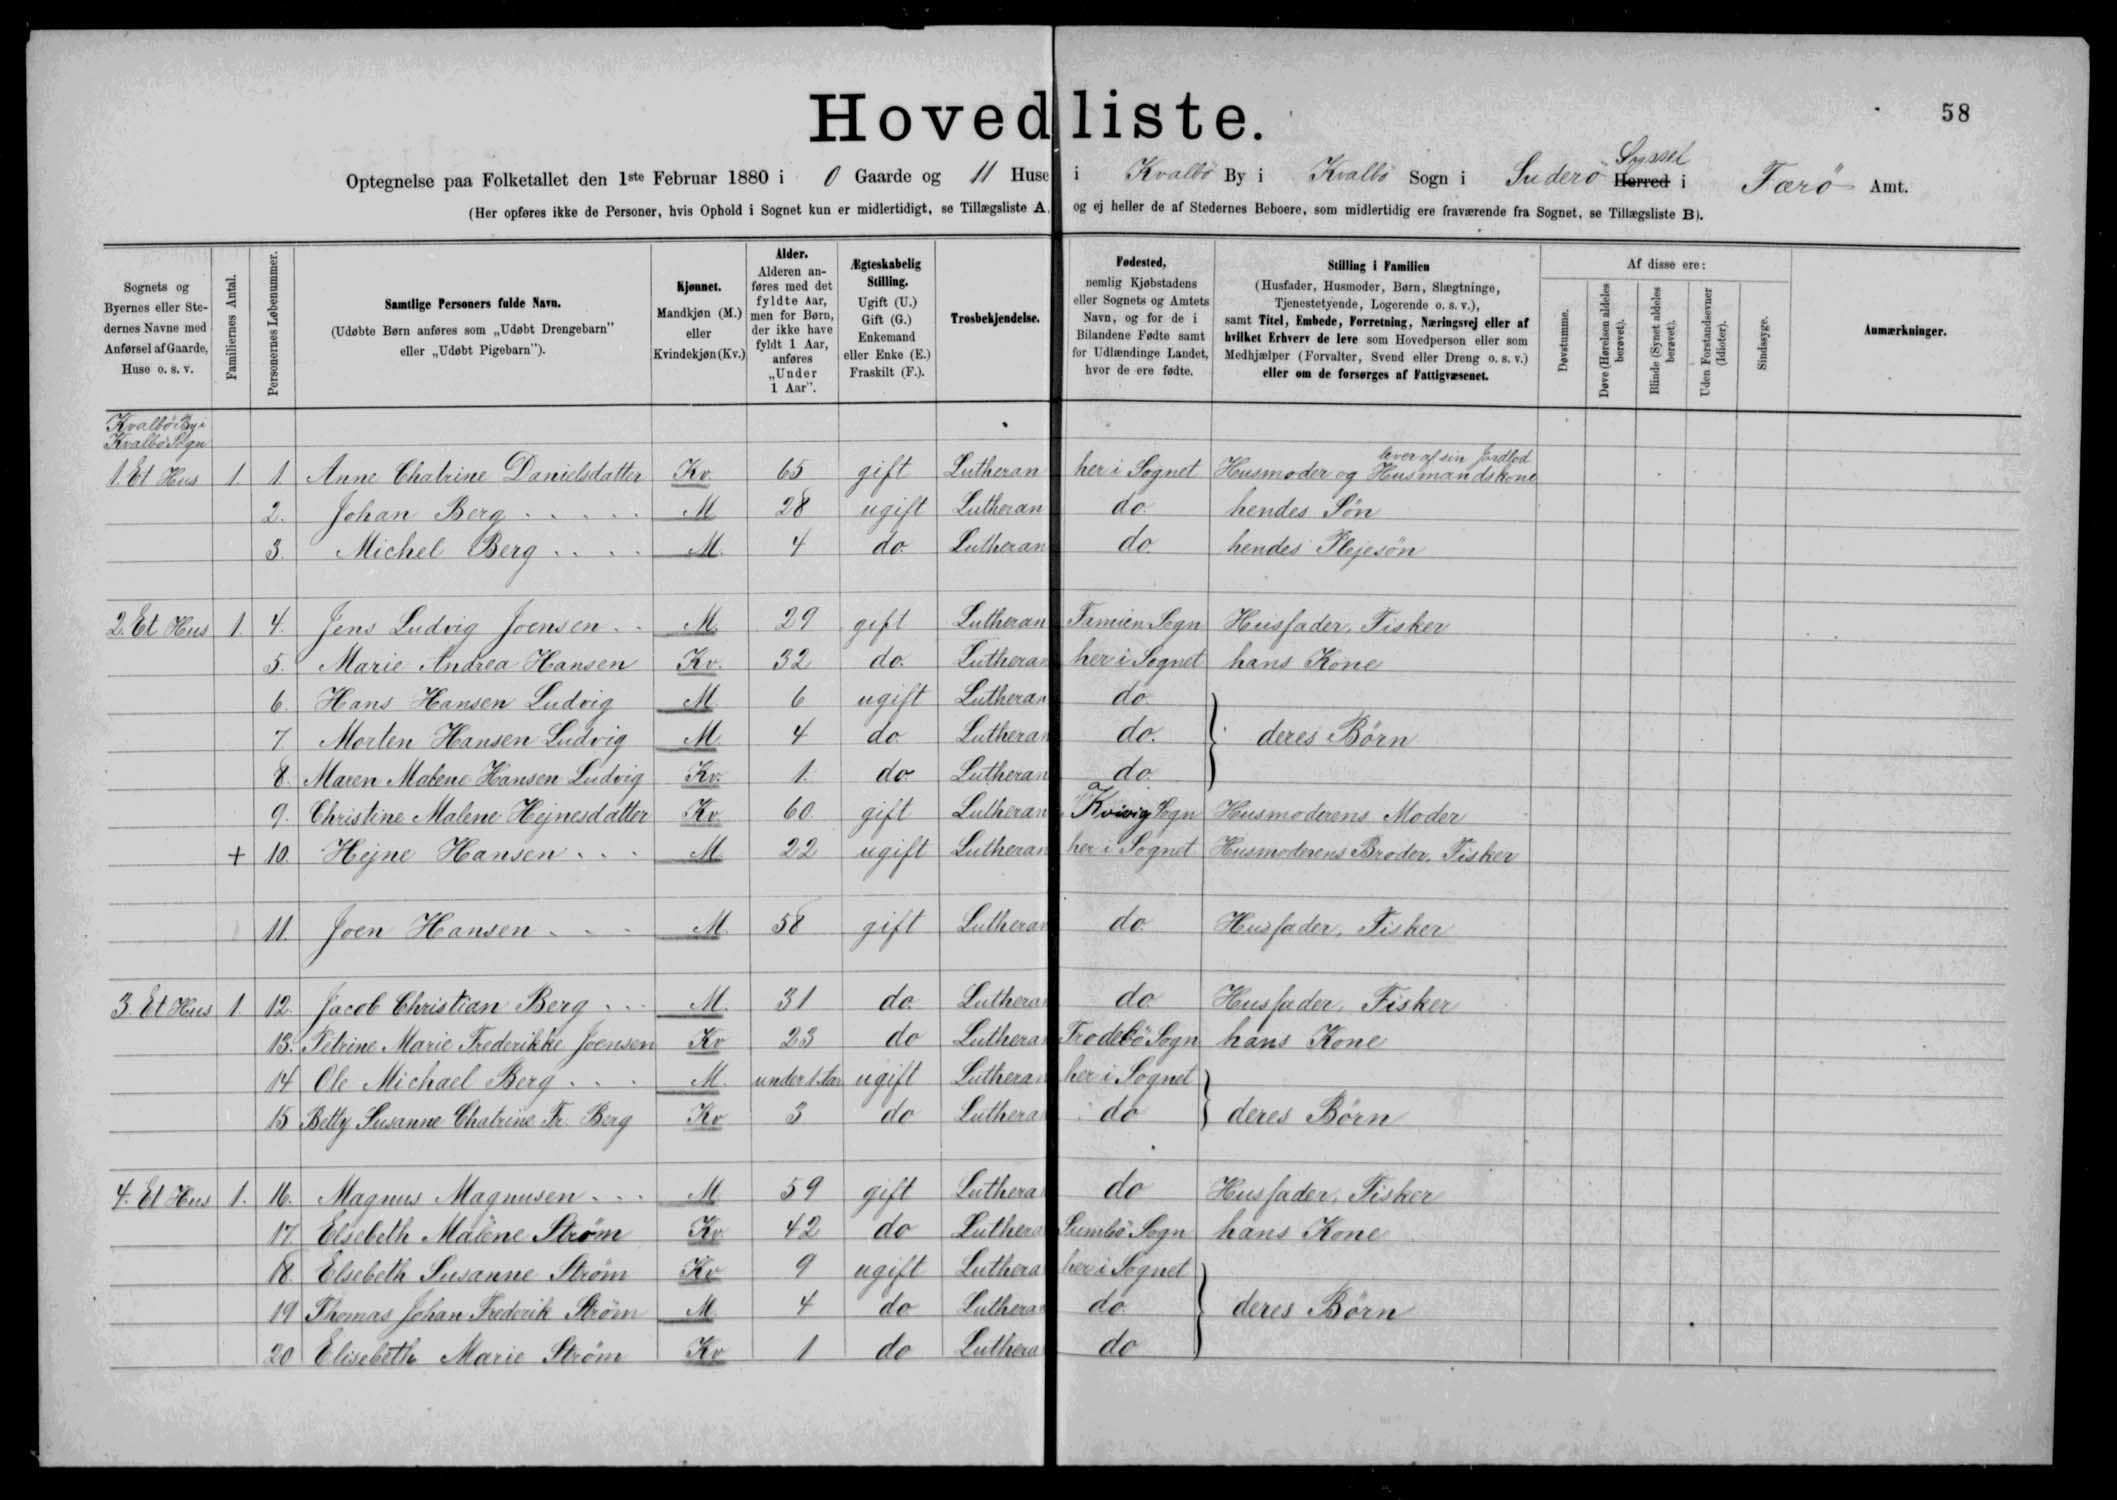 Hovedliste.
58
Optegnelse paa Folketallet den 1ste Februar 1880 i 0 Gaarde og 11 Huse i Kvalbø By i Kvalbø Sogn i Suderø Syssel Herred i Færø Amt.
(Her opføres ikke de Personer, hvis Ophold i Sognet kun er midlertidigt, se Tillægsliste A. og ej heller de af Stedernes Beboere, som midlertidig ere fraværende fra Sognet, se Tillægsliste B).
Sognets og Byernes eller Stedernes Navne med Anførsel af Gaarde, Huse o. s. v.
Familiernes Antal.
Personernes Løbenummer.
Samtlige Personers fulde Navn.
(Udøbte Børn anføres som „Udøbt Drengebarn" eller „Udøbt Pigebarn").
Kjønnet.
Mandkjøn (M.) eller Kvindekjøn (Kv.)
Alder.
Alderen anføres med det fyldte Aar, men for Børn, der ikke have fyldt 1 Aar, anføres „Under 1 Aar".
Ægteskabelig Stilling.
Ugift (U.) Gift (G.) Enkemand eller Enke (E.) Fraskilt (F.).
Trosbekjendelse.
Fødested,
nemlig Kjøbstadens eller Sognets og Amtets Navn, og for de i Bilandene Fødte samt for Udlændinge Landet, hvor de ere fødte.
Stilling i Familien
(Husfader, Husmoder, Børn, Slægtninge, Tjenestetyende, Logerende o. s. v.),
samt Titel, Embede, Forretning, Næringsvej eller af hvilket Erhverv de leve som Hovedperson eller som Medhjælper (Forvalter, Svend eller Dreng o. s. v.) eller om de forsørges af Fattigvæsenet.
Af disse ere:
Døvstumme.
Døve (Hørelsen aldeles berøvet).
Blinde (Synet aldeles berøvet).
Uden Forstandsevner (Idioter).
Sindssyge.
Anmærkninger.
Kvalbø By i
Kvalbø Sogn
lever af sin Jordlod
1. Et Hus 1. 1. Anne Chatrine Danielsdatter Kv. 65 gift Lutheran her i Sognet Husmoder og Husmandskone
2. Johan Berg M 28 ugift Lutheran do. hendes Søn
3. Michel Berg M. 4 do. Lutheran do. hendes Plejesøn
2. Et Hus 1. 4. Jens Ludvig Joensen M. 29 gift Lutheran Famien Sogn Husfader, Fisker
5. Marie Andrea Hansen Kv. 32 do. Lutheran her i Sognet hans Kone
6. Hans Hansen Ludvig M. 6 ugift Lutheran do.
7. Morten Hansen Ludvig M 4 do. Lutheran do. deres Børn
8. Maren Malene Hansen Ludvig Kv. 1. do Lutheran do.
9. Christine Malene Hejnesdatter Kv 60. gift Lutheran Kvivig Sogn Husmoderens Moder
+ 10. Hejne Hansen M. 22 ugift Lutheran her i Sognet Husmoderens Broder, Fisker
11. Joen Hansen M. 58 gift Lutheran do. Husfader, Fisker
3. Et Hus 1. 12. Jacob Christian Berg M. 31 do. Lutheran do. Husfader, Fisker
13. Petrine Marie Frederikke Joensen Kv 23 do Lutheran Frodebø Sogn hans Kone
14 Ole Michael Berg M. under 1 Aar ugift Lutheran her i Sognet
15 Betty Susanne Chatrine Fr. Berg Kv 3 do Lutheran do deres Børn
4. Et Hus 1. 16. Magnus Magnusen M 59 gift Lutheran do Husfader, Fisker
17. Elsebeth Malene Strøm Kv. 42 do Lutheran Sumbø Sogn hans Kone
18. Elsebeth Susanne Strøm Kv 9 ugift Lutheran her i Sognet
19 Thomas Johan Frederik Strøm M. 4 do Lutheran do. deres Børn
20 Elisebeth Marie Strøm Kv 1 do Lutheran do